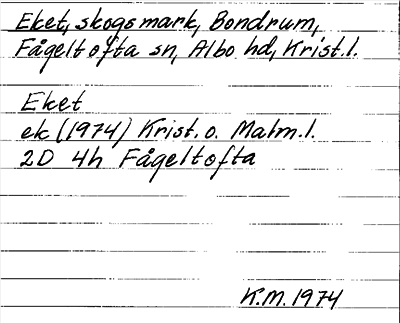 Eket, skogsmark, Bondrum,
Fågeltofta sn, Albo hd, Krist.l.
Eket
ek (1974) Krist. o. Malm.l.
2D 4h Fågeltofta
K.M. 1974